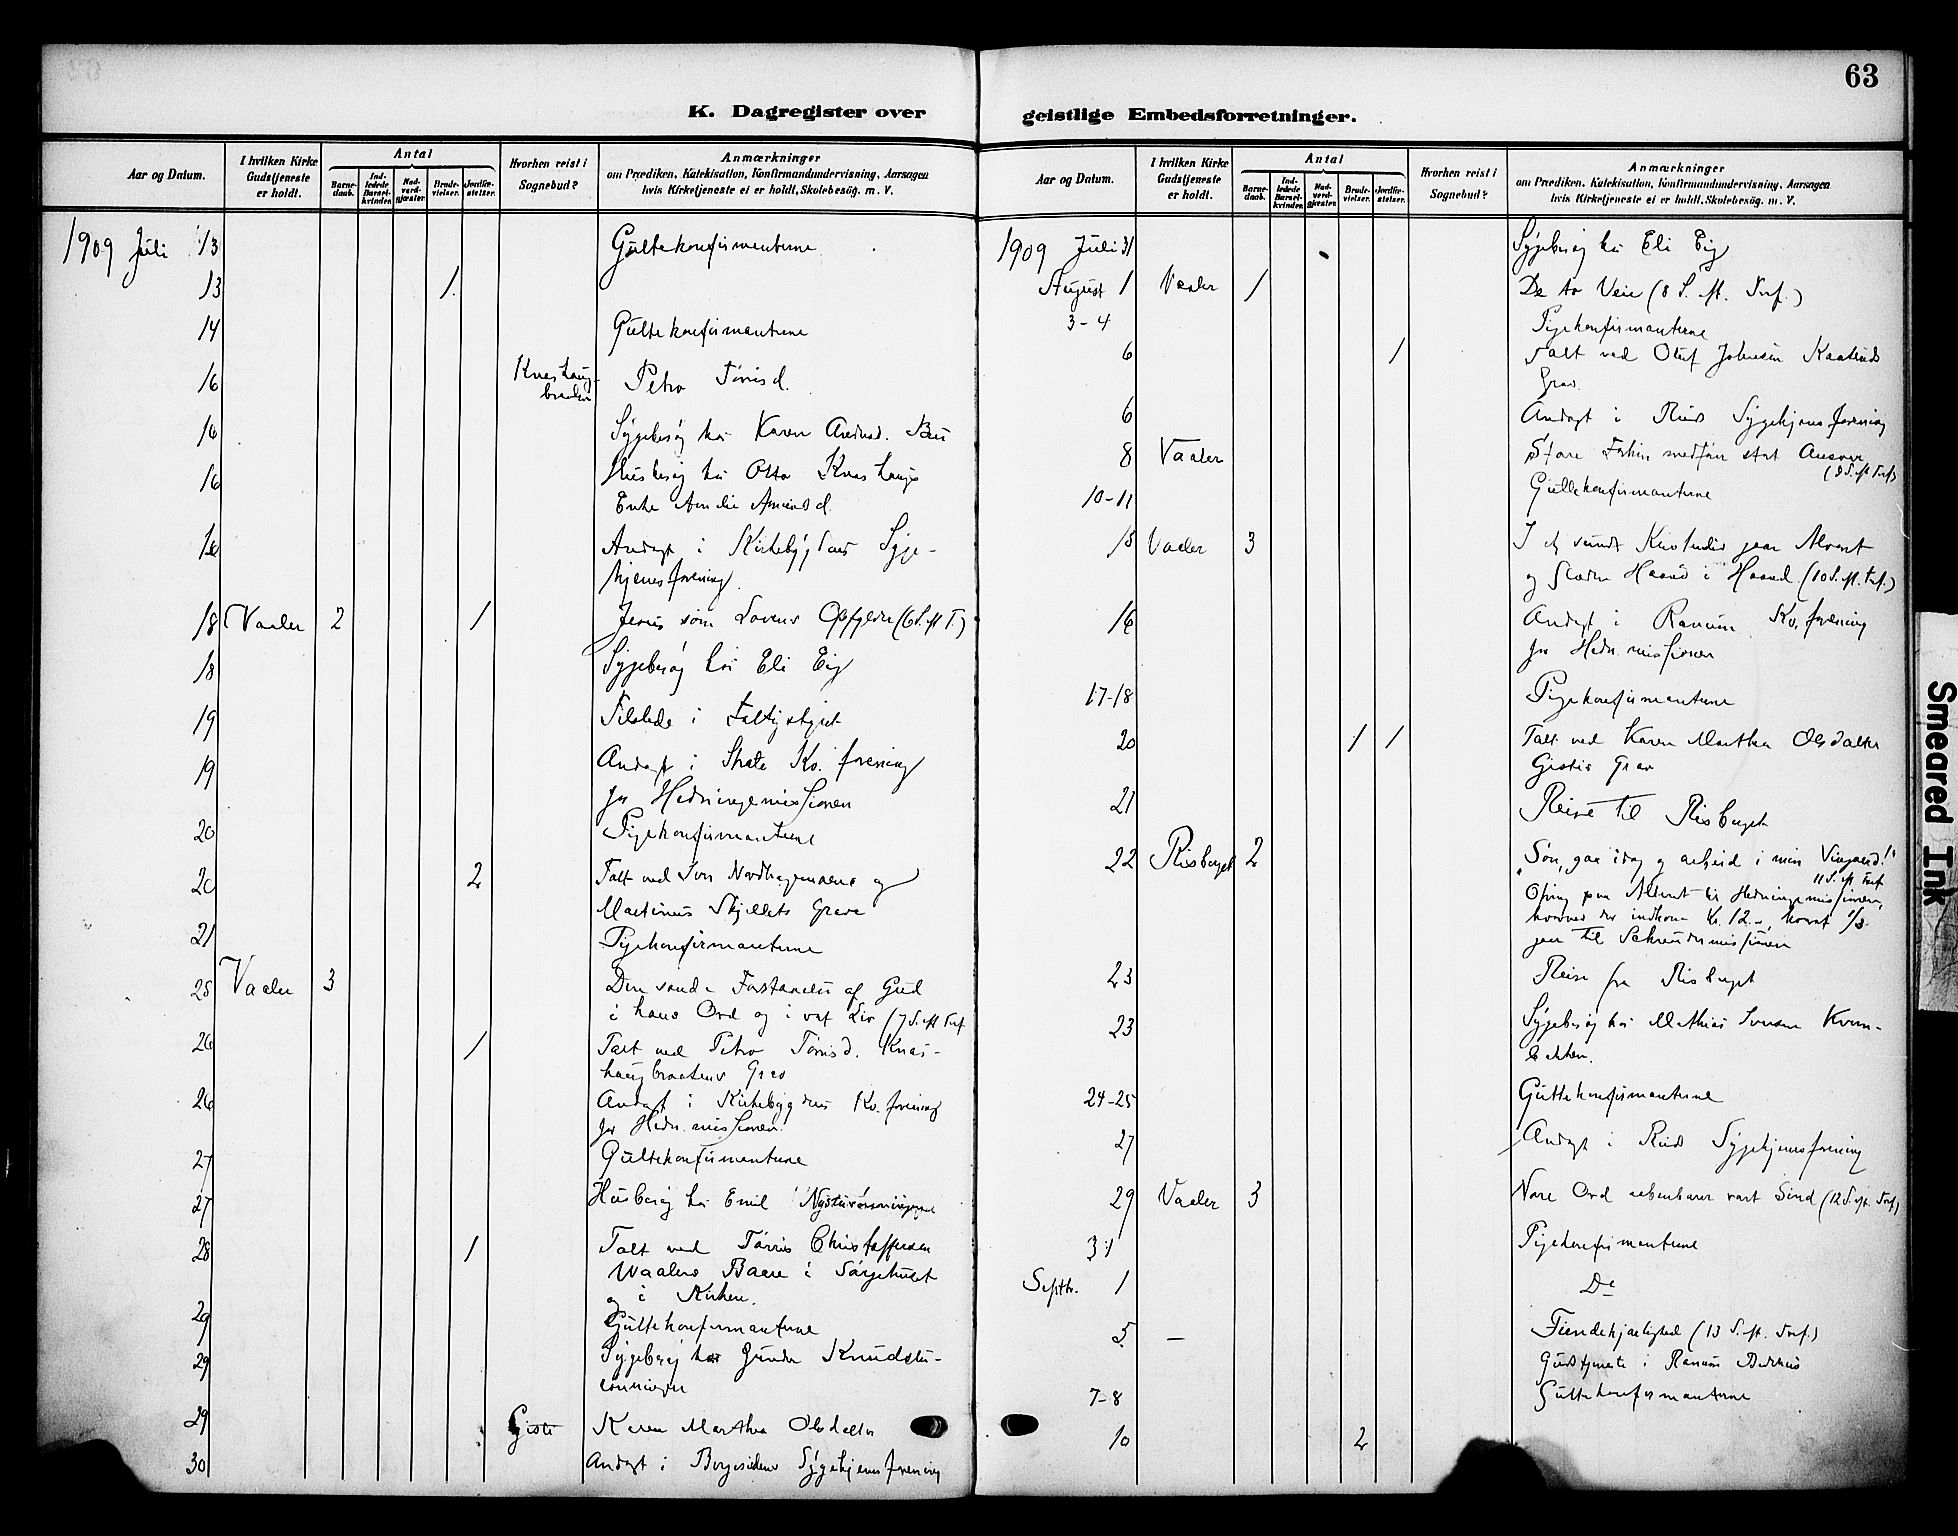 63
K. Dagregister over geistlige Embedsforretninger.
Aar og Datum.
I hvilken Kirke Gudstjeneste er holdt.
Antal
Barne-daab.
Ind-ledede Barsel-kvinder.
Nad-verd-gjæster.
Brude-vielser.
Jordfæ-stelser.
Hvorhen reist i Sognebud?
Anmærkninger
om Prædiken, Katekisation, Konfirmandundervisning, Aarsagen
hvis Kirketjeneste ei er holdt, Skolebesøg. m. V.
1909 Juli 13 Guttekonfirmanterne
13 1.
14 Guttekonfirmanterne
16 Knashaug-
braaten Petra Tørrisd.
16 Sygebesøg hos Karen
16 Husbesøg hos Otto Knashaugs
Enke
16 Andagt i Kirkebygdens Syge-
hjemsforening
18 Vaaler 2 1 Jesus som Lovens Opfylder (6 S. e. T.)
18 Sygebesøg hos Eli Eig
19 Tilstede i Fattigstyret
19 Andagt i Kv. forening
for Hedningemissionen
20 Pigekonfirmanterne
20 2 Talt ved Nordhagens og
Martinus Skjellets Grave
21 Pigekonfirmanterne
25 Vaaler 3 Den sande Forstaaelse af Gud
i hans Ord og i vort Liv (7 S. e. Tref.
26 1 Talt ved Petra Tørrisd. Knas-
haugbraatens Grav
26 Andagt i Kirkebygdens Kv. forening
for Hedn. missionen.
27 Guttekonfirmanterne
27 Husbesøg hos Emil
28 1 Talt ved Tørris Christoffersen
Vaalers Baare i Sørgehuset
og i Kirken.
29 Guttekonfirmanterne
29 Sygebesøg hos Knudstu-
29 Giste Karen Marthea Olsdatter
30 Andagt i Sygehjemsforening
Aar og Datum.
I hvilken Kirke Gudstjeneste er holdt.
Antal
Barne-daab.
Ind-ledede Barsel-kvinder.
Nad-verd-gjæster.
Brude-vielser.
Jordfæ-stelser.
Hvorhen reist i Sognebud?
Anmærkninger
om Prædiken, Katekisation, Konfirmandundervisning, Aarsagen
hvis Kirketjeneste ei er holdt, Skolebesøg. m. V.
1909 Juli 31 Sygebesøg hos Eli Eig
August 1 Vaaler 1 De to Veie (8 S. e. Tref.)
3-4 Pigekonfirmanterne
6 1 Talt ved Oluf Johnsen
Grav.
6 Andagt i Sygehjemsforening
8 Vaaler Store medfører stort Ansvar
(9 S. e. Tref)
10-11 Guttekonfirmanterne
15 Vaaler 3 I et sundt Kristenliv gaar Alvoret
og Glæden Haand i Haand. (10 S. e. Tref.)
16 Andagt i Ranum Kv. forening
for Hedn. missionen
17-18 Pigekonfirmanterne
20 1 1 Talt ved Karen Marthea Olsdatter
Gistis Grav
21 Reise til Risberget
22 Risberget 2 "Søn, gaa idag og arbeid i min Vingaard!"
11 S. e. Tref.
Ofring paa Alteret til Hedningemissionen,
hvorved der indkom Kr. 12 -, hvoraf 1/3
gaar til Schreudermissionen
23 Reise fra Risberget
23 Sygebesøg hos Mathias Iversen Kvern-
bakken.
24-25 Guttekonfirmanterne
27 Andagt i Sygehjemsforening
29 Vaaler 3 Vore Ord aabenbarer vort Sind (12 S. e. Tref)
31 Pigekonfirmanterne
Septbr. 1 Do
5 — Fiendekjærlighed (13 S. e. Tref.)
Gudstjeneste i Ranum Bedehus
7-8 Guttekonfirmanterne
10 2
Smeared Ink